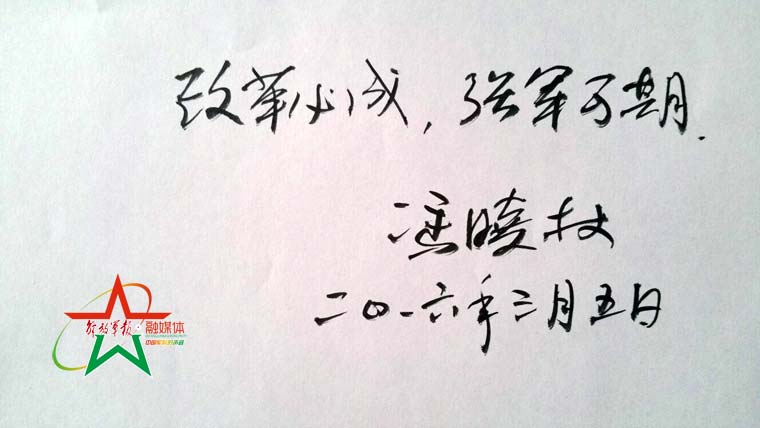 改革必成，强军可期.
冯晓林
二〇一六年三月五日
解放军报·融媒体
中国军队好声音